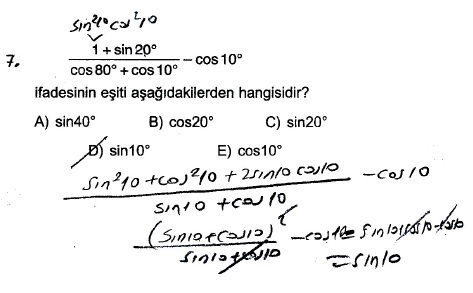 sin²10 cos²10
7. (1 + sin 20°) / (cos 80° + cos 10°) − cos 10°
ifadesinin eşiti aşağıdakilerden hangisidir?
A) sin40° B) cos20° C) sin20°
D) sin10° E) cos10°
(sin²10 + cos²10 + 2sin10 cos10) / (sin10 + cos10) − cos10
(sin10 + cos10)² / (sin10 + cos10) − cos10 = sin10 + cos10 − cos10
= sin10